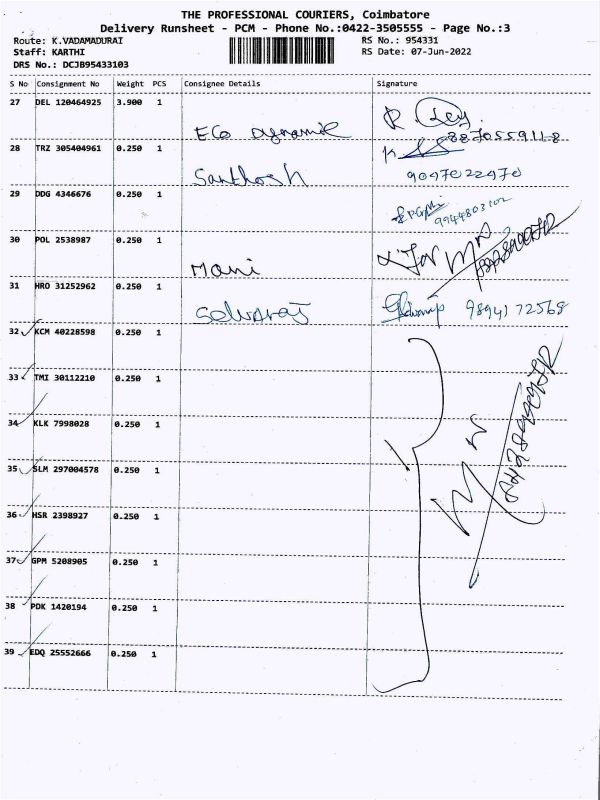 THE PROFESSIONAL COURIERS, Coimbatore
Delivery Runsheet - PCM - Phone No.:0422-3505555 - Page No.:3
Route: K.VADAMADURAI RS No.: 954331
Staff: KARTHI RS Date: 07-Jun-2022
DRS No.: DCJB95433103
S No Consignment No Weight PCS Consignee Details Signature
27 DEL 120464925 3.900 1
Eco Dynamic 8870559118
28 TRZ 305404961 0.250 1
Santhosh 9047022470
29 DDG 4346676 0.250 1
9944803102
30 POL 2538987 0.250 1
Mani
31 HRO 31252962 0.250 1
Selvaraj 9894172568
32 KCM 40228598 0.250 1
33 TMI 30112210 0.250 1
34 KLK 7998028 0.250 1
35 SLM 297004578 0.250 1
36 HSR 2398927 0.250 1
37 GPM 5208905 0.250 1
38 PDK 1420194 0.250 1
39 EDQ 25552666 0.250 1